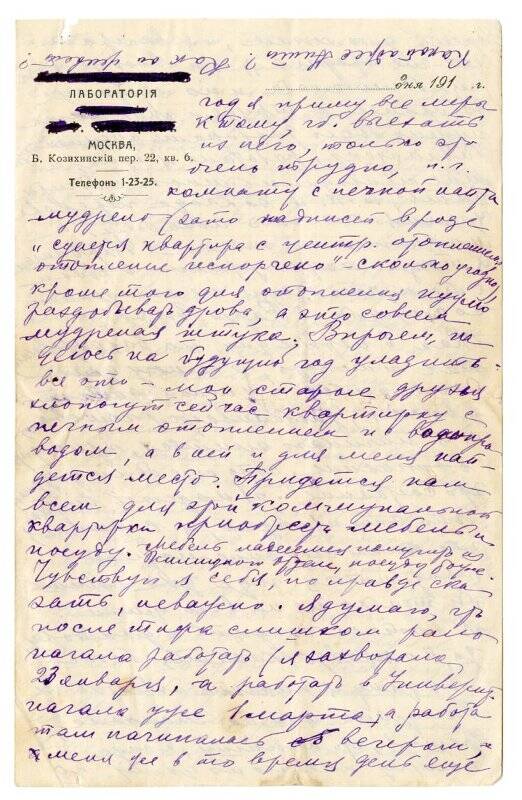 Какой адрес Нины? Как он живет?
ЛАБОРАТОРІЯ
МОСКВА,
Б. Козихинскій пер. 22, кв. 6.
Телефонъ 1-23-25.
дня 191 г.
год я приму все меры
к тому, чт. выехать
из него, только это
очень трудно, п. г.
комнату с печкой найти
мудрено (зато надписей вроде
"сдается квартира с центр. отоплением,
отопление испорчено" - сколько угодно,
кроме того для отопления нужно
раздобывать дрова, а это совсем
мудреная штука. Впрочем, на
деюсь на будущую год уладить
все это - мои старые друзья
хлопочут сейчас квартирку с
печным отоплением и с водопро
водом, а в ней и для меня най-
дется место. Придется нам
всем для этой коммунальной
квартирки приобрести мебель и
посуду. Мебель надеемся получить из
жилищного отдела, посуду
Чувствую я себя, по правде ска
зать, неважно. Я думаю, чт.
после тифа слишком рано
начала работать (я захворала
23 января, а работать в Универси
начала уже 1 марта, а работа
там начиналась в 5 вечером, и
у меня же в то время день еще